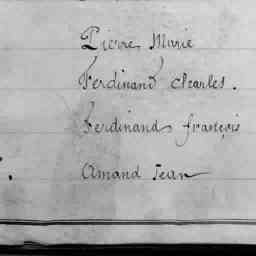 Pierre Marie
Ferdinand Charles.
Ferdinand françois
Amand Jean